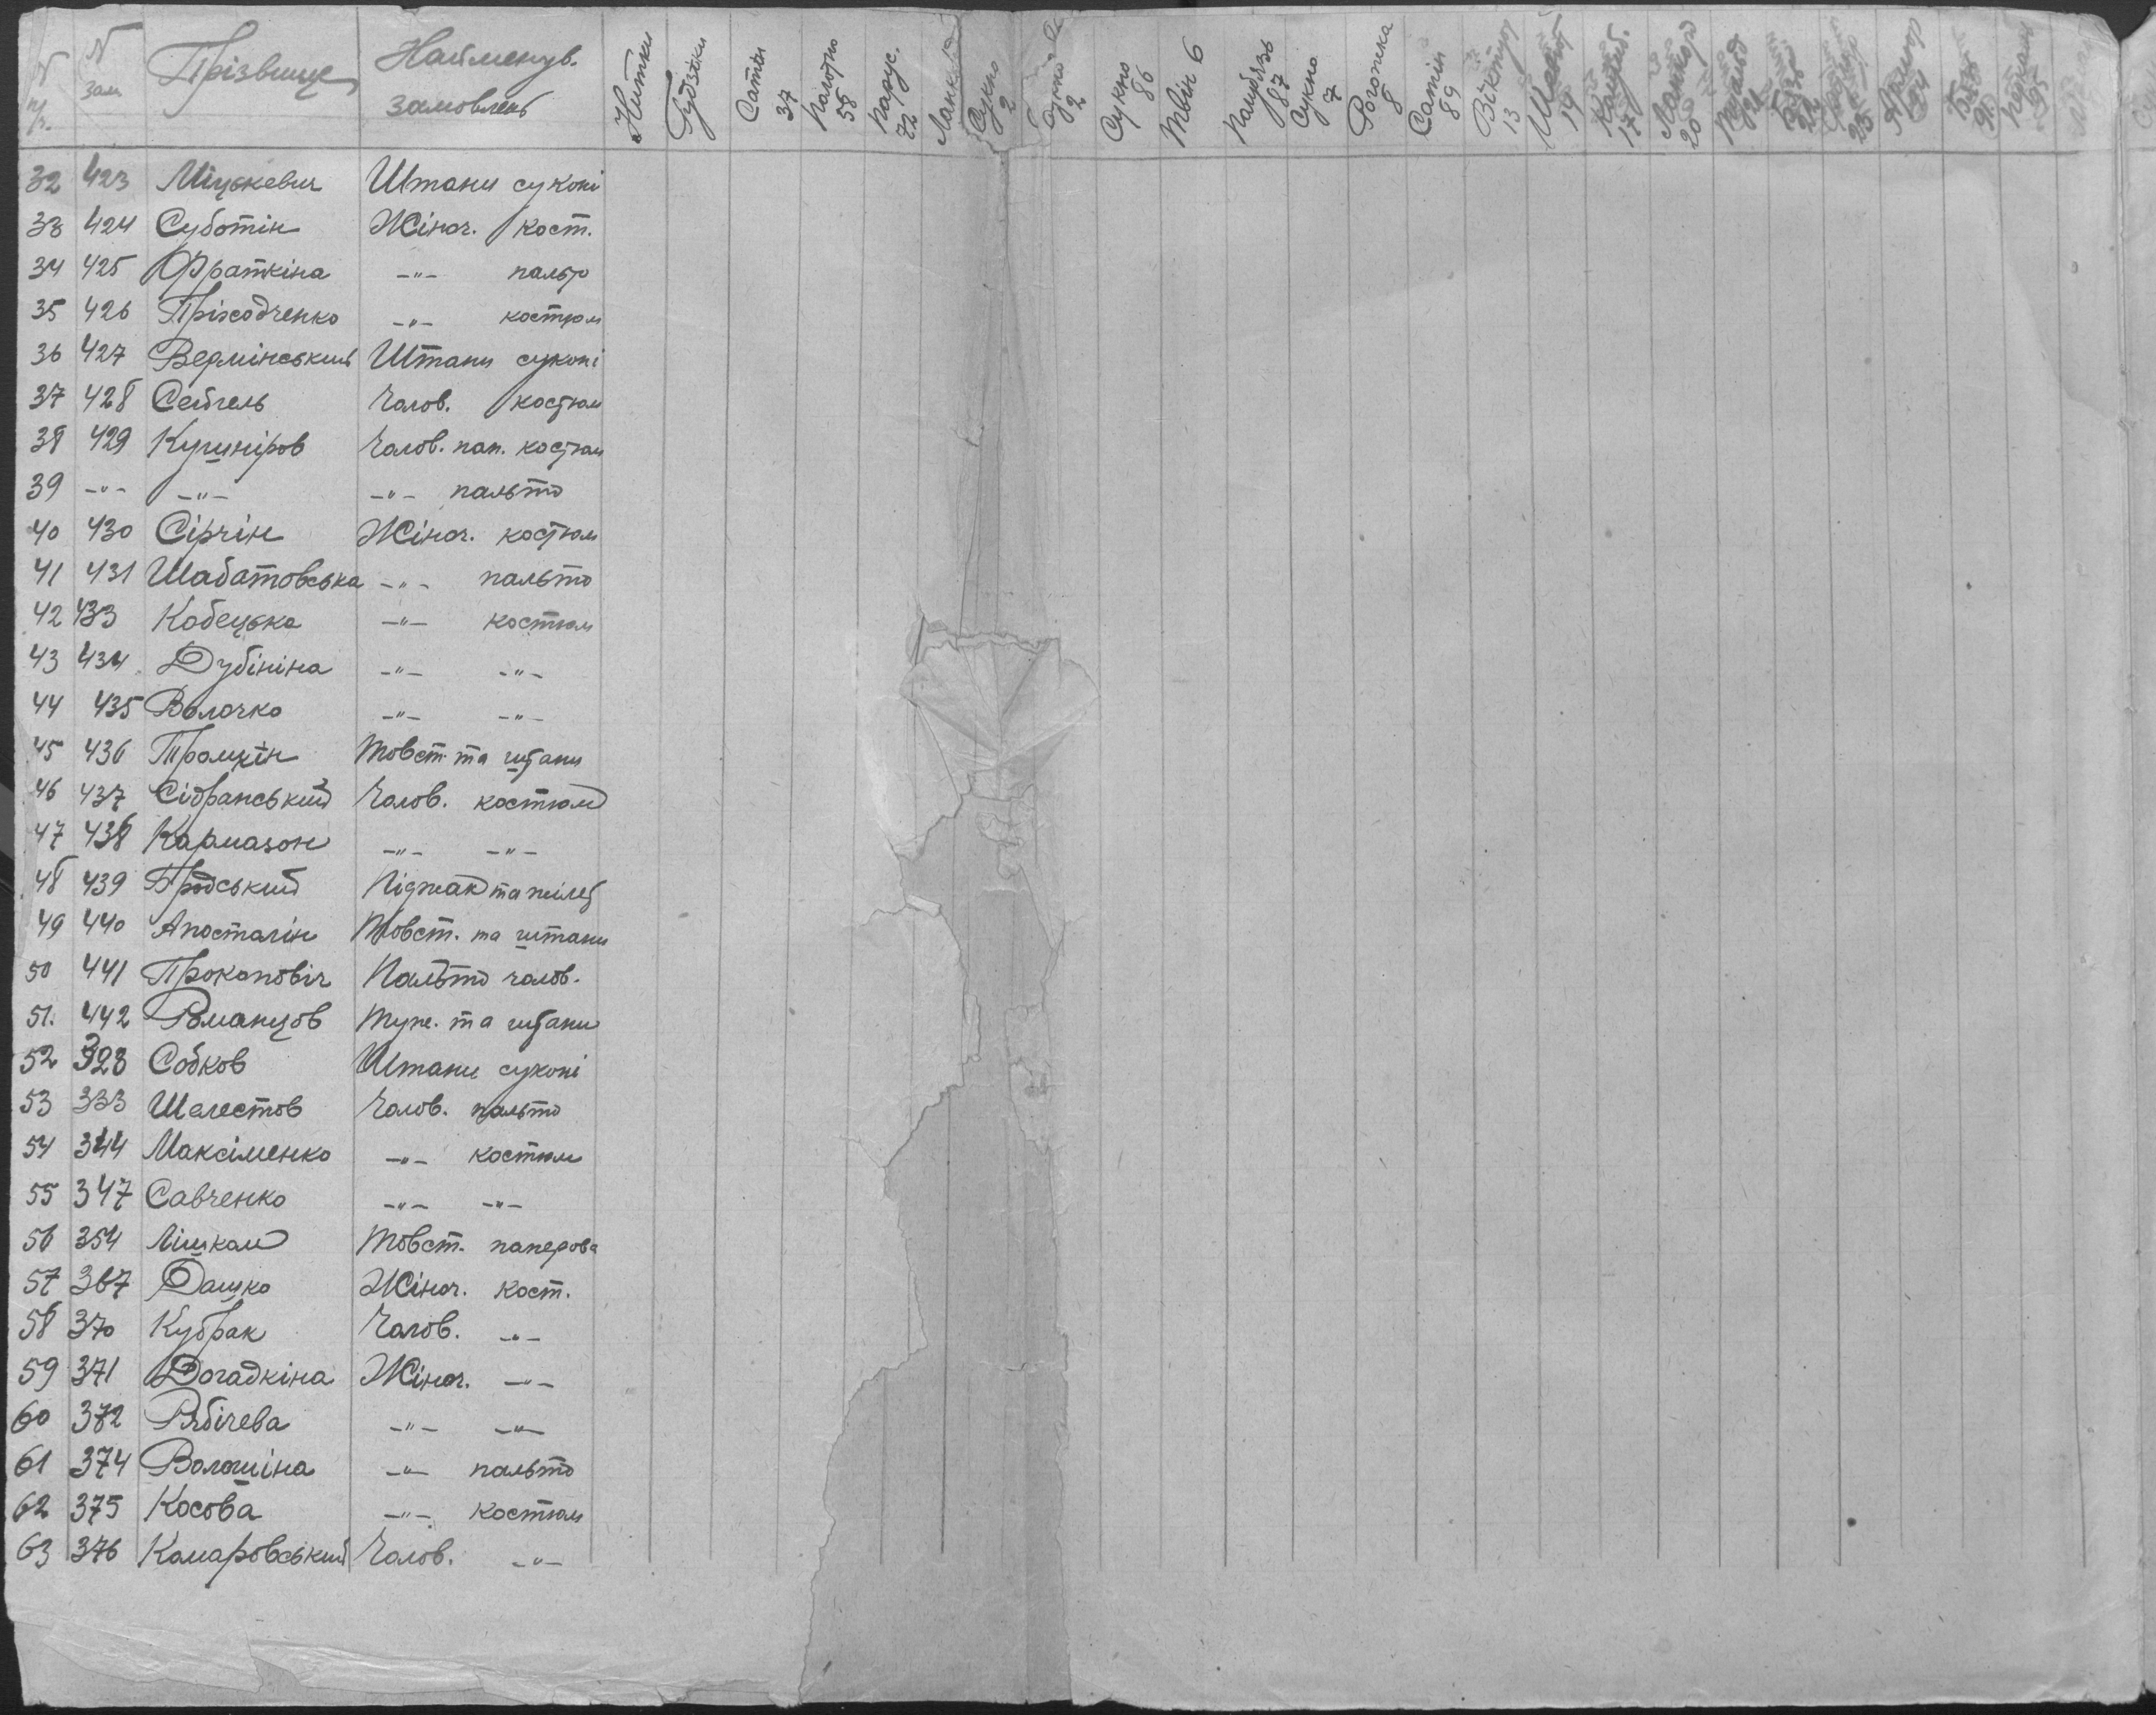 N п/п. N зам Прізвище Найменув. замовлень Нитки Гудзіки Сатін 37 Полотно 58 Парус. 72 Сукно 2 Сукно 2 Сукно 86 Твін 6 87 Сукно 7 Рогожка 8 Сатін 89 13 14 17 20
32 423 Міцькевич Штани суконі
33 424 Суботін Жіноч. кост.
34 425 Фраткіна -"- пальто
35 426 Пріходченко -"- костюм
36 427 Вермінський Штани суконі
37 428 Сейгель Чолов. костюм
38 429 Кушніров Чолов. пап. костюм
39 -"- -"- -"- пальто
40 430 Сірчін Жіноч. костюм
41 431 Шабатовська -"- пальто
42 433 Кобецька -"- костюм
43 434 Дубініна -"- -"-
44 435 Волочко -"- -"-
45 436 Товст. та штани
46 437 Чолов. костюм
47 438 Кармазон -"- -"-
48 439 Бродський Піджак та жілет
49 440 Апосталін Товст. та штани
50 441 Прокопович Пальто чолов.
51. 442 Романцов Туж. та штани
52 328 Собков Штани суконі
53 333 Шелестов Чолов. пальто
54 344 Максіменко -"- костюм
55 347 Савченко -"- -"-
56 354 Товст. паперова
57 367 Дашко Жіноч. кост.
58 370 Кубрак Чолов. -"-
59 371 Догадкіна Жіноч. -"-
60 372 Рябічева -"- -"-
61 374 Волошіна -"- пальто
62 375 Косова -"- костюм
63 376 Комаровський Чолов. -"-